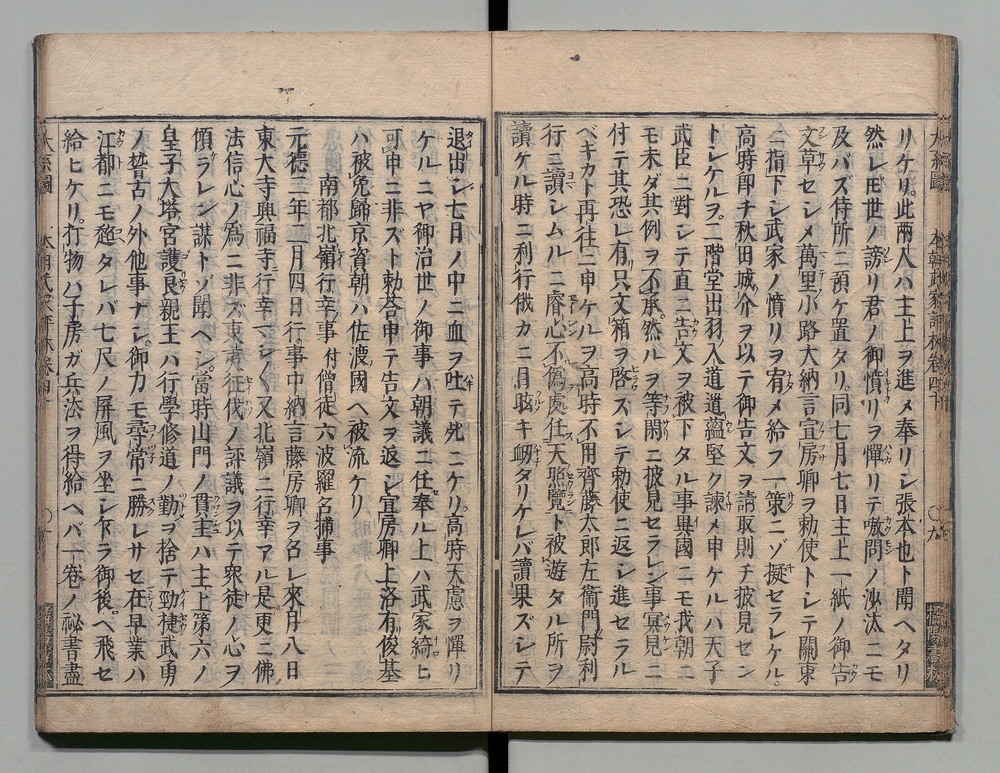 リケリ。此兩人ハ主上ヲ進メ奉リシ張本也ト聞ヘタリ
然レ𪜈世ノ謗リ君ノ御憤リヲ憚リテ嗷問ノ沙汰ニモ
及バズ侍所ニ預ケ置タリ。同七月七日主上一紙ノ御告
文草セシメ萬里小路大納言宣房卿ヲ勅使トシテ關東
ニ指下シ武家ノ憤リヲ宥メ給フ一策ニゾ擬セラレケル。
高時即チ秋田城介ヲ以テ御告文ヲ請取則チ披見セン
トシケルヲ。二階堂出羽入道道蘊堅ク諫メ申ケルハ天子
武臣ニ對シテ直ニ告文ヲ被下タル事異國ニモ我朝ニ
モ未ダ其例ヲ不承。然ルヲ等閑ニ披見セラレン事冥見ニ
付テ其恐レ有。只文箱ヲ啓ズシテ勅使ニ返シ進セラル
ベキカト再往ニ申ケルヲ高時不用齊藤太郎左衞門尉利
行ニ讀シムルニ。睿心不僞處任天照覽ト被遊タル所ヲ
讀ケル時ニ利行俄カニ目眩キ衂タリケレバ讀果ズシテ
退出シ七日ノ中ニ血ヲ吐テ死ニケリ。高時天慮ヲ憚リ
ケルニヤ御治世ノ御事ハ朝議ニ任奉ル上ハ武家綺ヒ
可申ニ非ズト勅答申テ告文ヲ返シ宣房卿上洛有俊基
ハ被免歸京資朝ハ佐渡國ヘ被流ケリ
南都北嶺行幸事 付 僧徒六波羅召捕事
元德二年二月四日行事中納言藤房卿ヲ召レ來月八日
東大寺興福寺行幸マシ〱又北嶺ニ行幸アル是更ニ佛
法信心ノ爲ニ非ズ東夷征伐ノ評議ヲ以テ衆徒ノ心ヲ
傾ラレン謀トゾ聞ヘシ。當時山門ノ貫主ハ主上第六ノ
皇子大塔宮護良親王ハ行學修道ノ勤ヲ捨テ勁捷武勇
ノ嗜古ノ外他事ナシ。御力モ尋常ニ勝レサセ在早業ハ
江都ニモ超タレバ七尺ノ屏風ヲ坐シ乍ラ御後ヘ飛セ
給ヒケリ。打物ハ子房ガ兵法ヲ得給ヘバ一卷ノ祕書盡